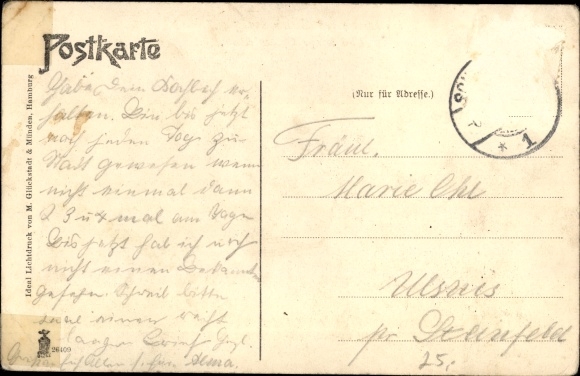 Postkarte
Habe dein er-
halten. Bin bis jetzt
noch jeden Tag zur
Stadt gewesen wenn
nicht einmal dann
2 3 u 4 mal am Tage
Bis jetzt hab ich noch
nicht einen Bekannten
gesehen. Schreib bitte
mal einen recht
langen Brief
Alma.
Ideal Lichtdruck von M. Glückstadt & Münden, Hamburg
26409
(Nur für Adresse.)
Fräul.
Marie
Ulsnis
pr
25.
1